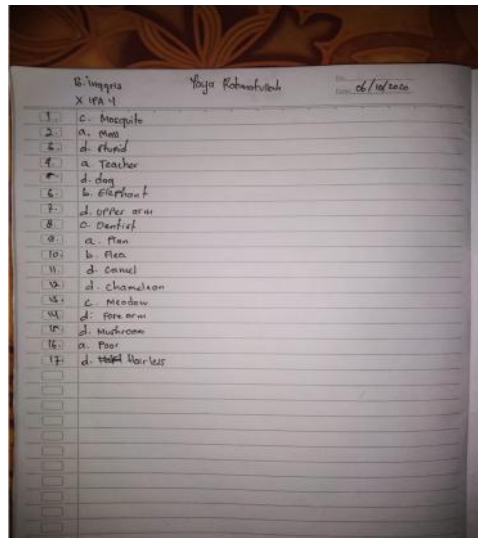 B. Inggris Yaya Rahmatullah No.
X IPA 4 Date. 06/10/2020
1. c. Mosquito
2. a. Moss
3. d. stupid
4. a. Teacher
5. d. dog
6. b. Elephant
7. d. upper arm
8. c. Dentist
9. a. Plan
10. b. Flea
11. d. Camel
12. d. chameleon
13. c. Meadow
14. d. Fore arm
15. d. Mushroom
16. a. Poor
17. d. Hairless